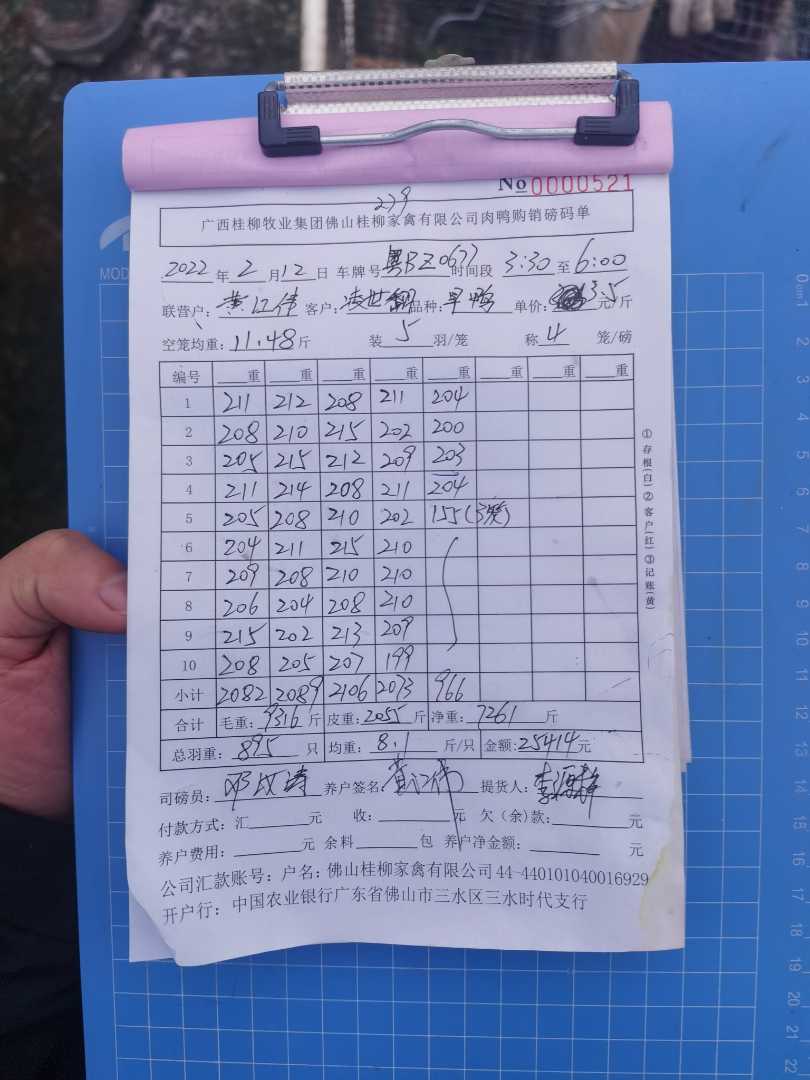 No 0000521
279
广西桂柳牧业集团佛山桂柳家禽有限公司肉鸭购销磅码单
2022年2月12日 车牌号粤BZ0677时间段 3:30至6:00
联营户:黄江伟 客户:凌世 品种:旱鸭 单价:3.5元/斤
空笼均重:11.48斤 装5羽/笼 称4笼/磅
编号 重 重 重 重 重 重 重 重
1 211 212 208 211 204
2 208 210 215 202 200
3 205 215 212 209 203
4 211 214 208 211 204
5 205 208 210 202 155(3笼)
6 204 211 215 210
7 209 208 210 210
8 206 204 208 210
9 215 202 213 209
10 208 205 207 199
小计 2082 2089 2106 2073 966
合计 毛重:9316斤 皮重:2055斤 净重:7261斤
总羽重:895只 均重:8.1斤/只 金额:25414元
司磅员:邓 养户签名:黄江伟 提货人:李
付款方式:汇 收: 元 欠(余)款: 元
养户费用: 元 余料 包 养户净金额: 元
公司汇款账号:户名:佛山桂柳家禽有限公司44-440101040016929
开户行:中国农业银行广东省佛山市三水区三水时代支行
①存根(白)②客户(红)③记账(黄)
MOD
0cm 1 2 3 4 5 6 7 8 9 10 11 12 13 14 15 16 17 18 19 20 21 22